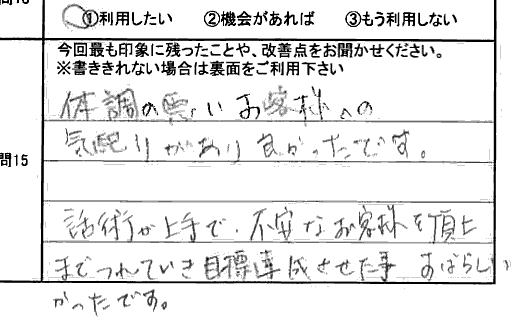 ①利用したい ②機会があれば ③もう利用しない
今回最も印象に残ったことや、改善点をお聞かせください。
※書ききれない場合は裏面をご利用下さい
体調の悪いお客様への
気配りがあり良かったです。
問15
話術が上手で、不安なお客様を頂上
までつれていき目標達成させた事 すばらし
かったです。